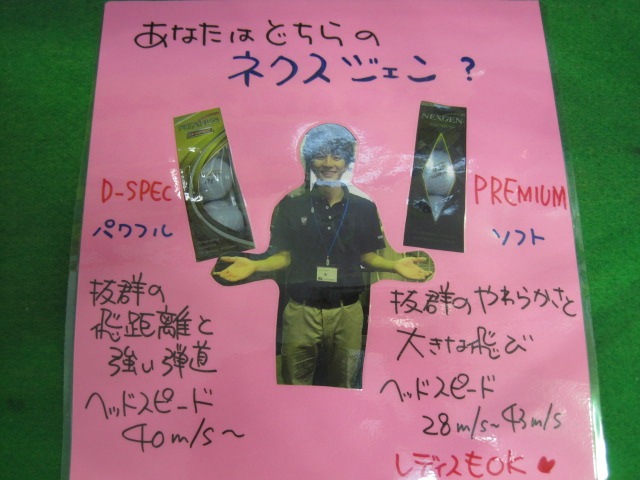 あなたはどちらの
ネクスジェン?
NEXGEN
D-SPEC
パワフル
PREMIUM
ソフト
抜群の
飛距離と
強い弾道
ヘッドスピード
40m/s〜
抜群のやわらかさと
大きな飛び
ヘッドスピード
28m/s〜43m/s
レディスもOK♥